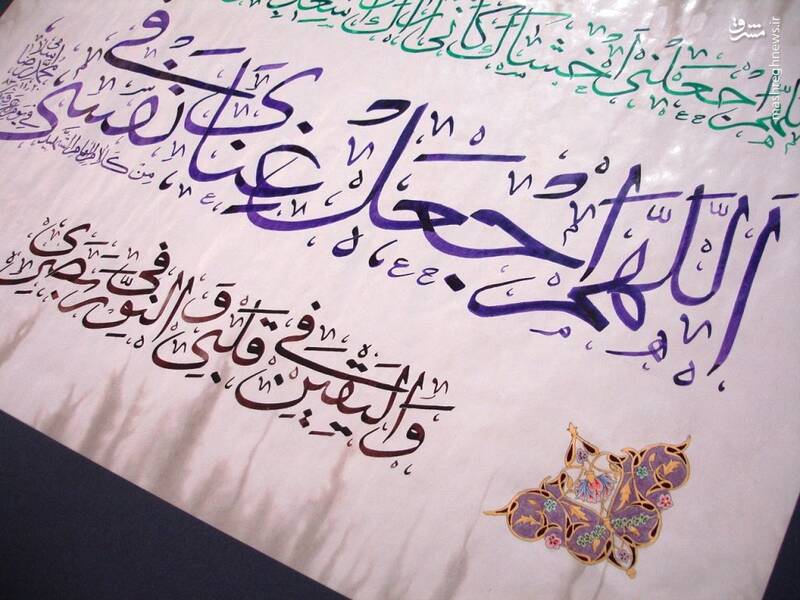 اللّهمّ اجعَلنی اَخشاک کانّی اراک
اَللّهُمَّ اجعَل غنایَ فی نَفسی
وَالیَقینَ فی قَلبی وَ النّورَ فی بَصَری
مشرق
mashreghnews.ir